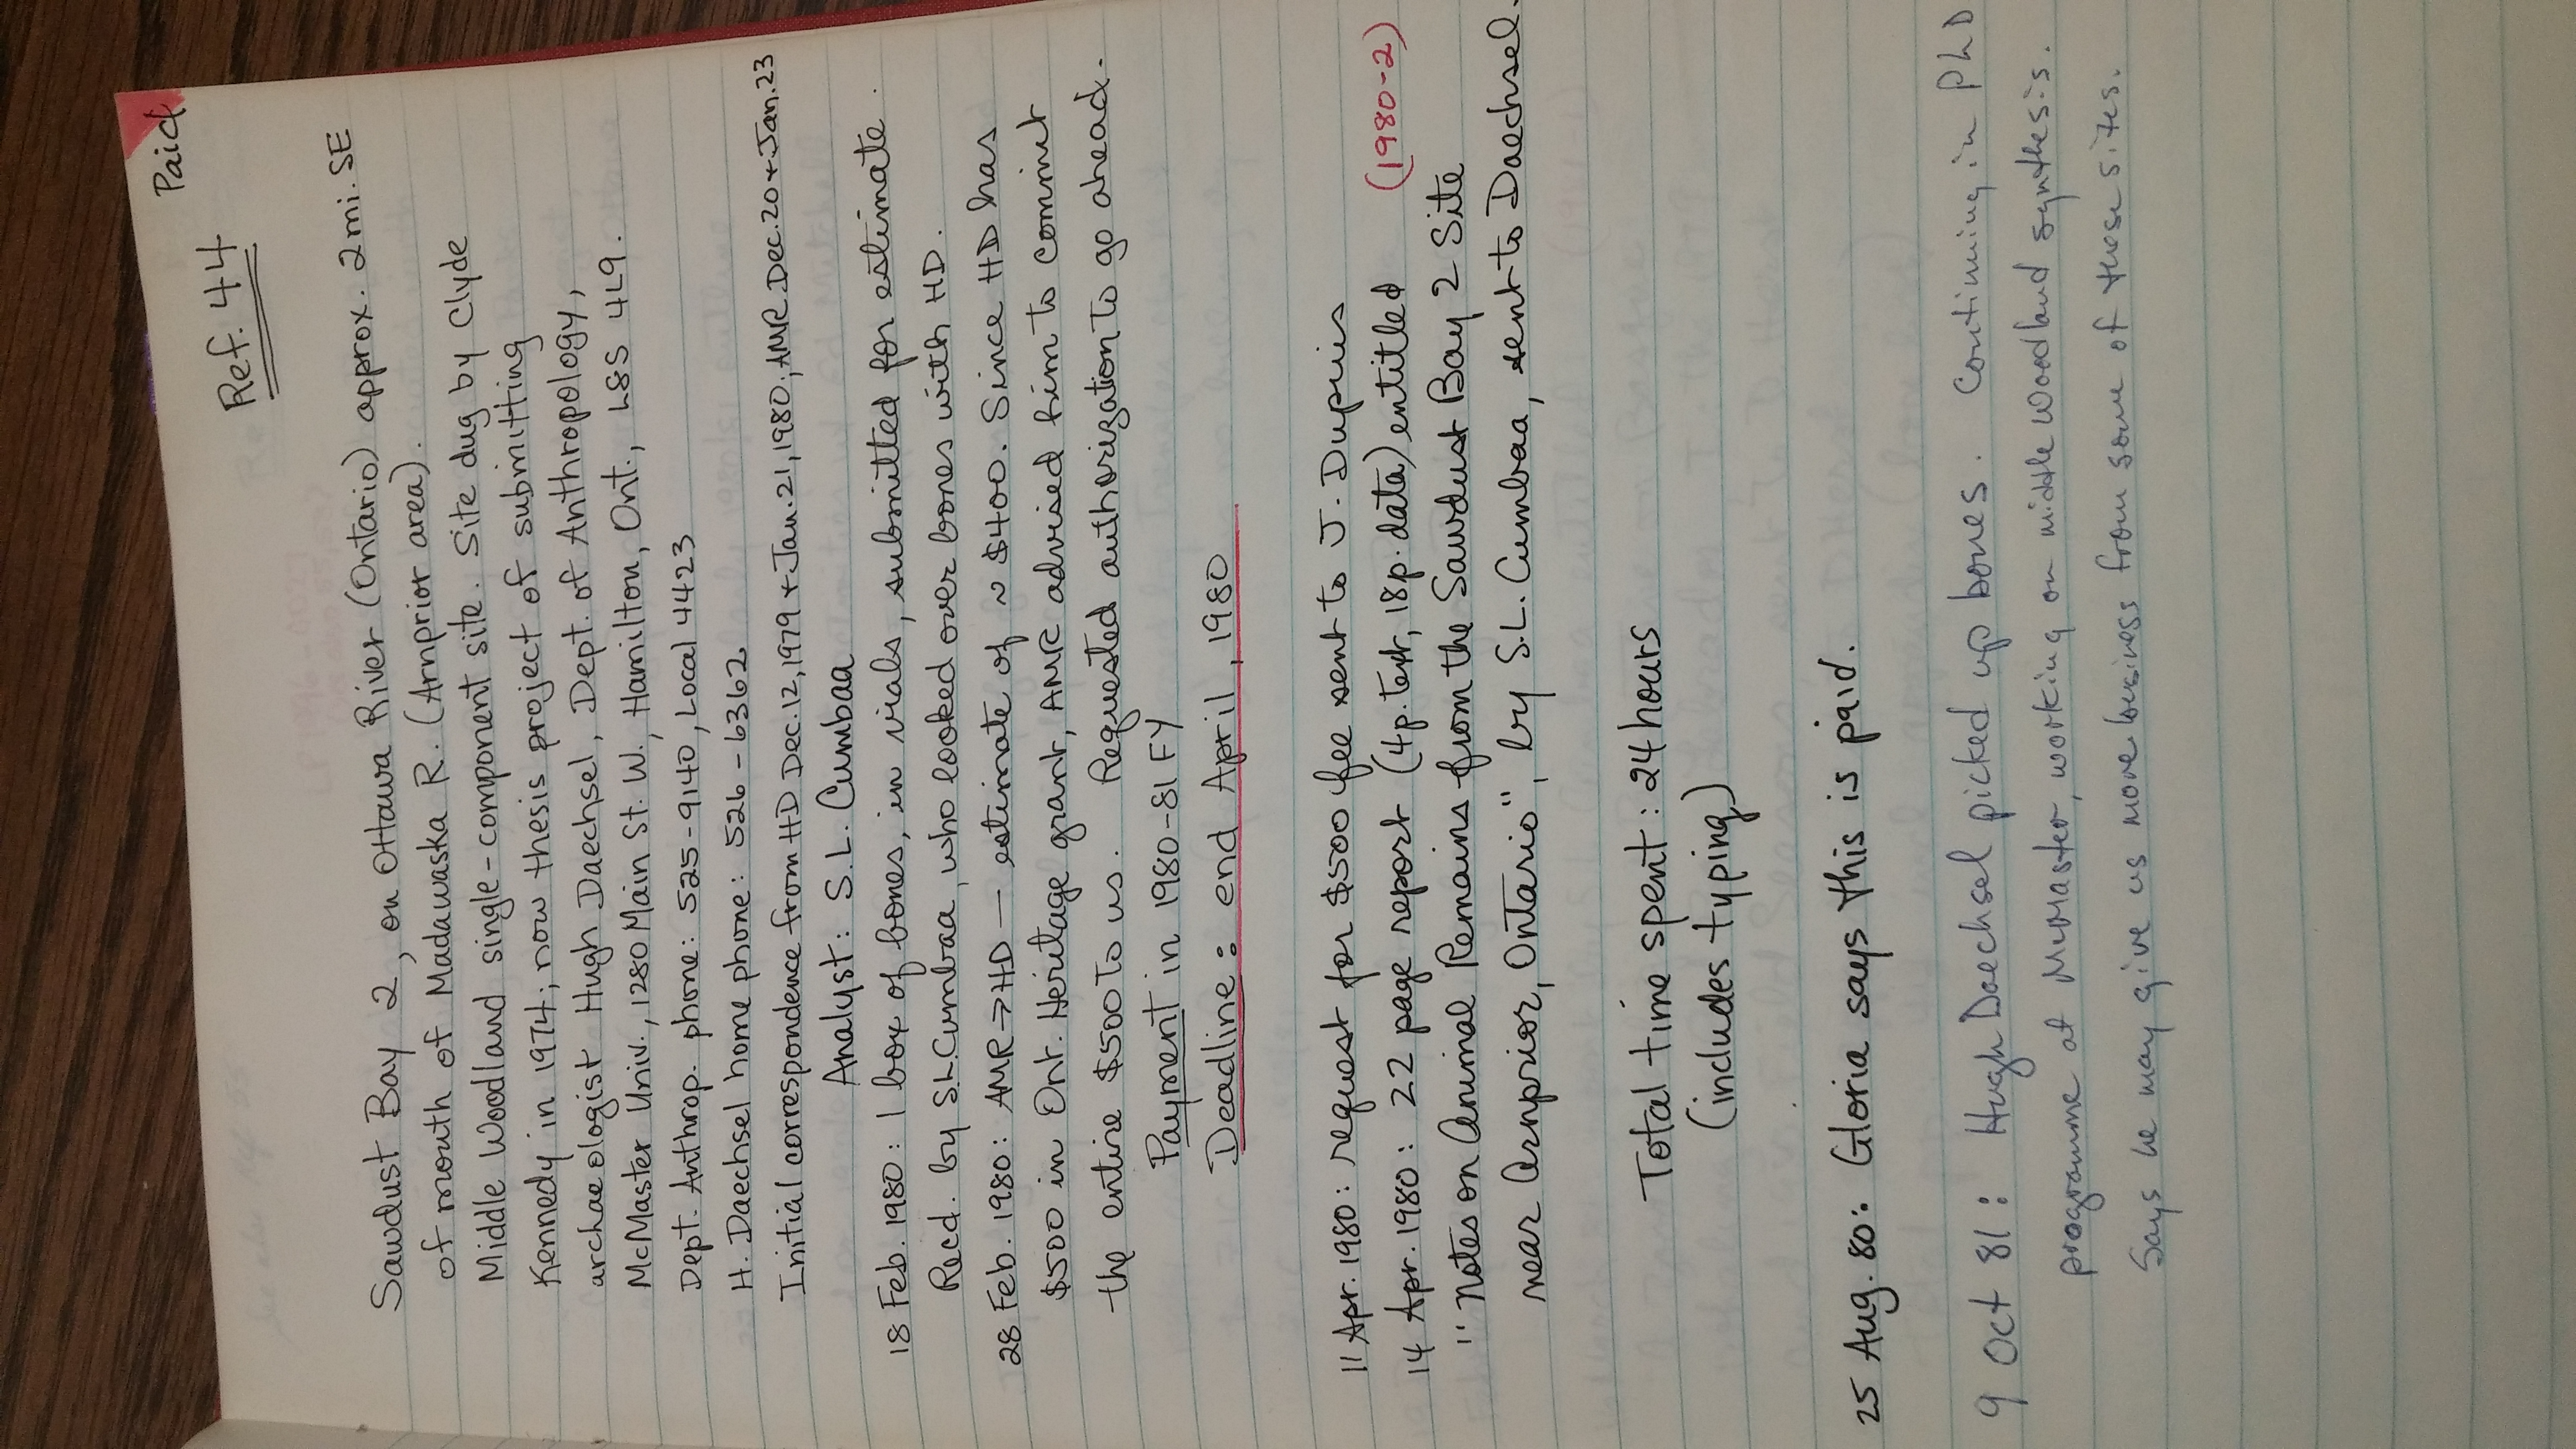 Paid
Ref. 44
Sawdust Bay 2, on Ottawa River (Ontario) approx. 2 mi. SE
of mouth of Madawaska R. (Arnprior area).
Middle Woodland single-component site. Site dug by Clyde
Kennedy in 1974; now thesis project of submitting
archaeologist Hugh Daechsel, Dept. of Anthropology,
McMaster Univ., 1280 Main St. W., Hamilton, Ont., L8S 4L9.
Dept. Anthrop. phone: 525-9140, Local 4423
H. Daechsel home phone: 526-6362
Initial correspondence from HD Dec. 12, 1979 + Jan. 21, 1980; AMR Dec. 20 + Jan. 23
Analyst: S.L. Cumbaa
18 Feb. 1980: 1 box of bones, in vials, submitted for estimate.
Recd. by S.L. Cumbaa, who looked over bones with HD.
28 Feb. 1980: AMR → HD — estimate of ~ $400. Since HD has
$500 in Ont. Heritage grant, AMR advised him to commit
the entire $500 to us. Requested authorization to go ahead.
Payment in 1980-81 FY
Deadline: end April, 1980
11 Apr. 1980: request for $500 fee sent to J. Dupuis
14 Apr. 1980: 22 page report (4p. text, 18p. data) entitled (1980-2)
"Notes on Animal Remains from the Sawdust Bay 2 Site
near Arnprior, Ontario", by S.L. Cumbaa, sent to Daechsel.
Total time spent: 24 hours
(includes typing)
25 Aug. 80: Gloria says this is paid.
9 Oct 81: Hugh Daechsel picked up bones. Continuing in PhD
programme at McMaster, working on middle Woodland synthesis.
Says he may give us more business from some of these sites.